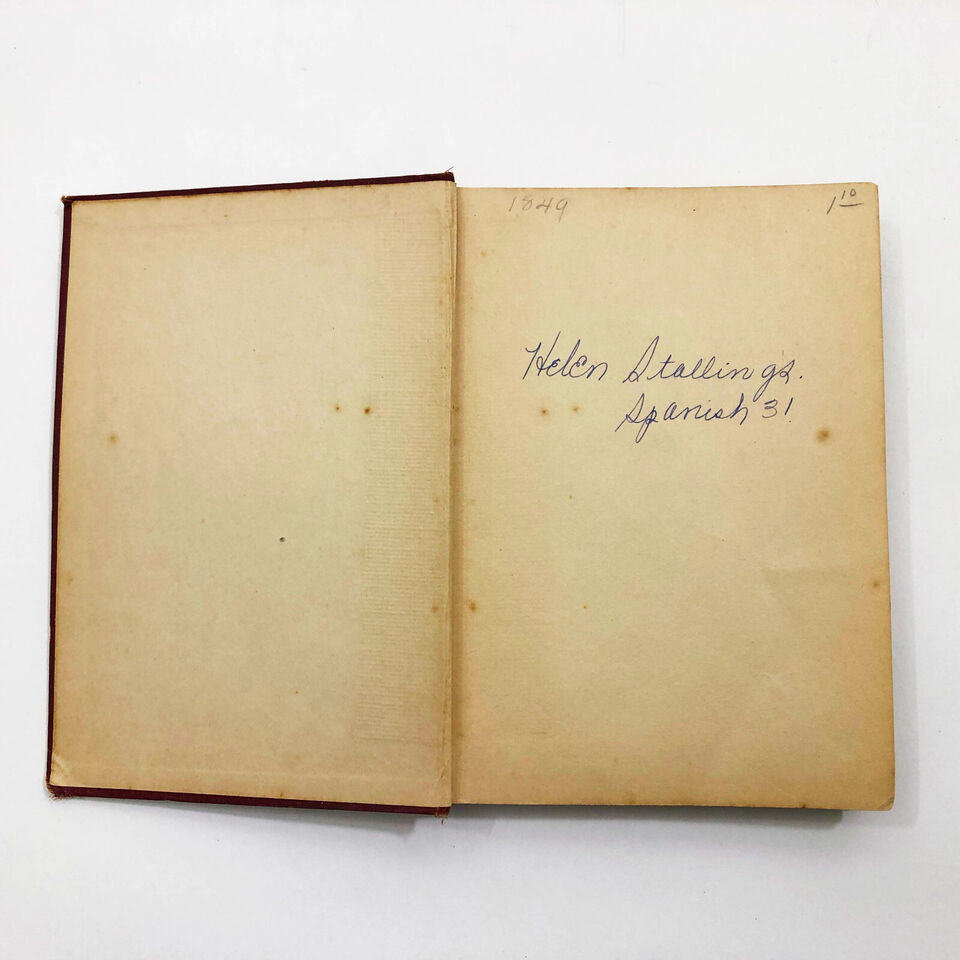 1849 1 10
Helen Stallings.
Spanish 31